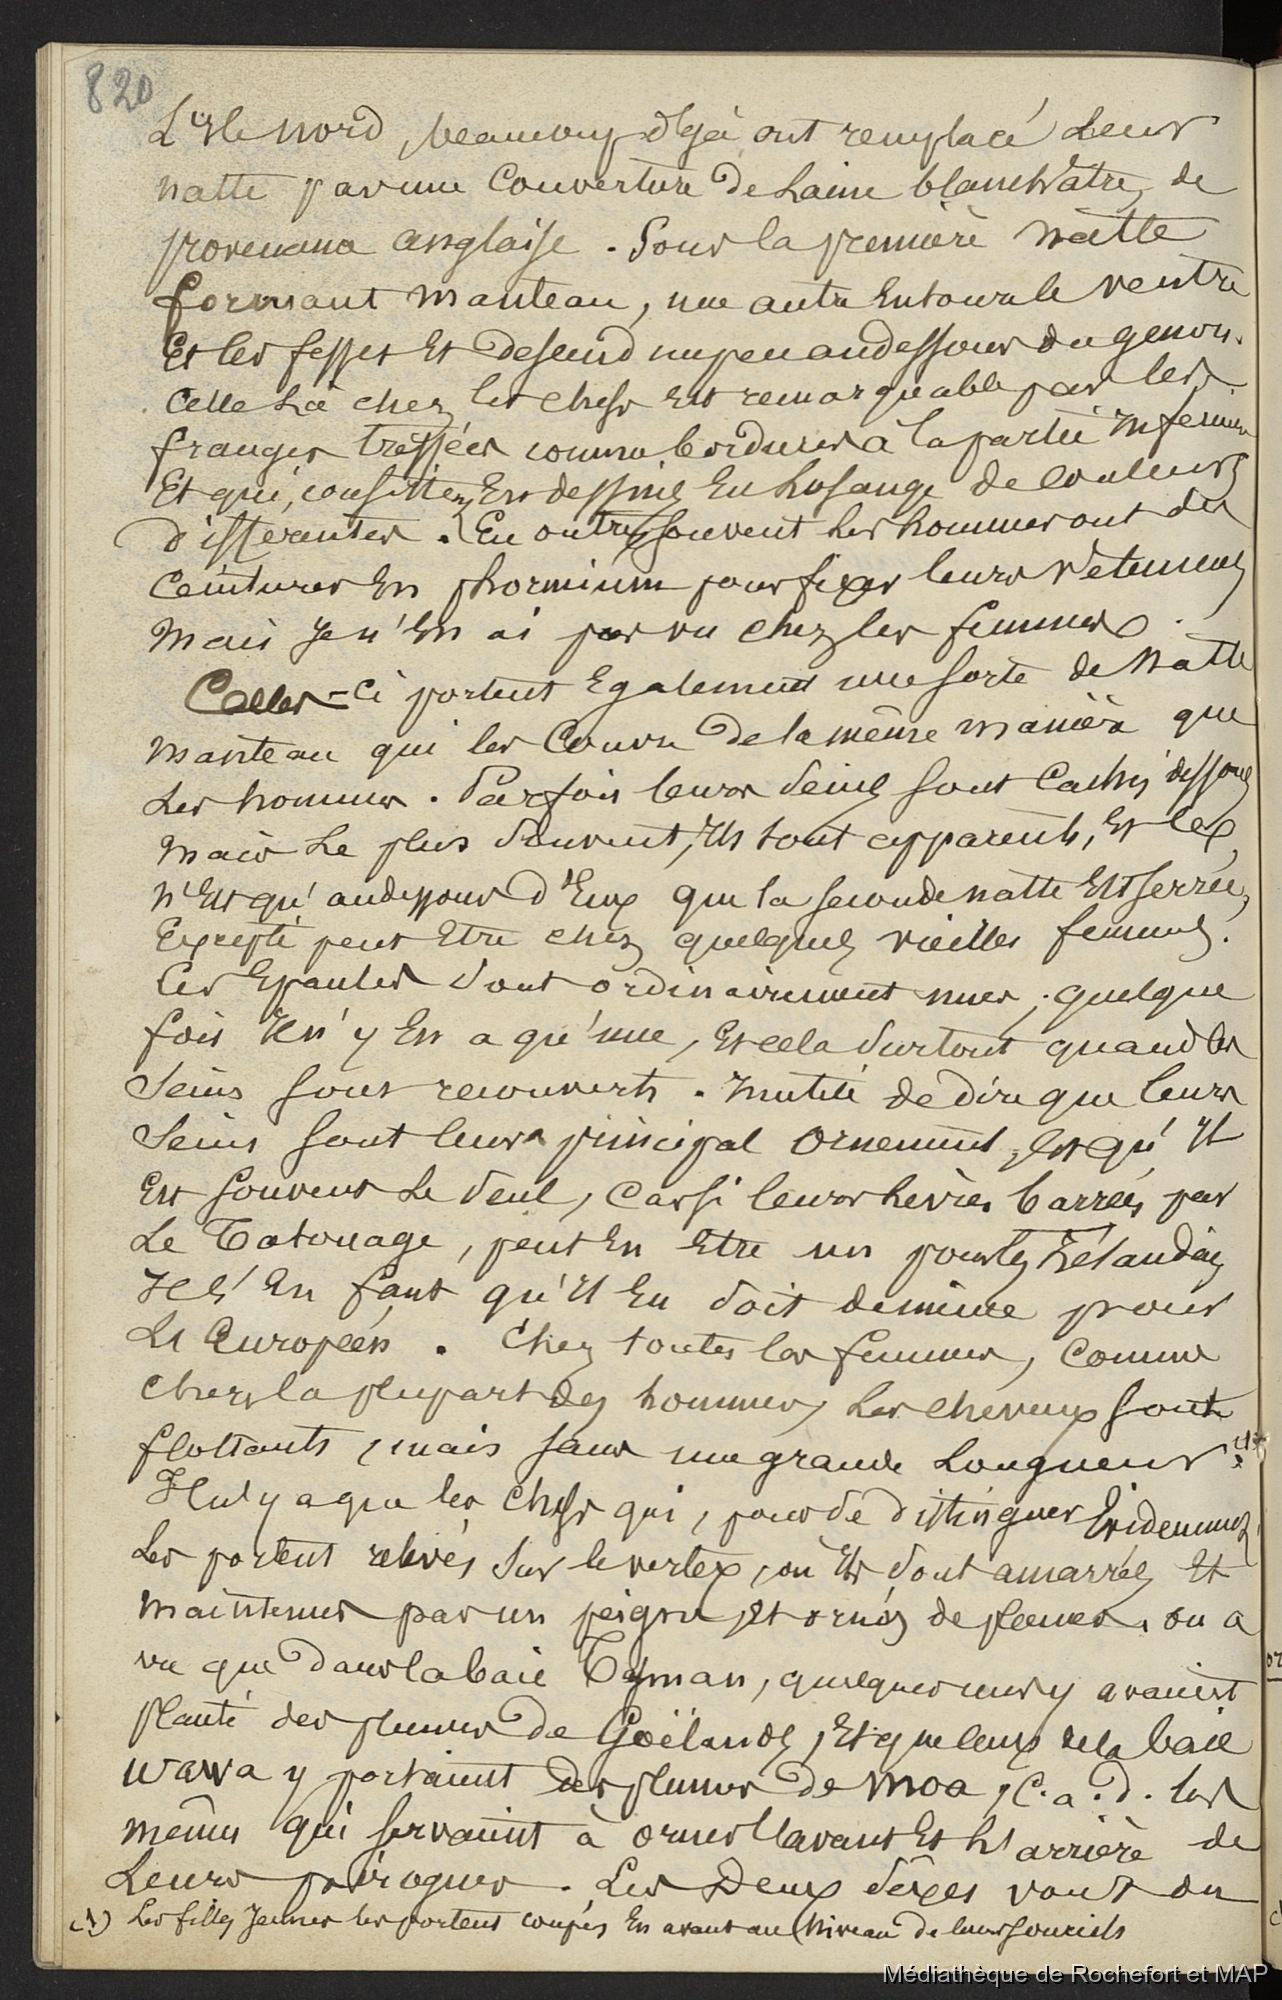 820
L'Isle nord, beaucoup déjà ont remplacé leur
natte par une Couverture de Laine blanchâtre, de
provenance anglaise. Sous la première natte
formant manteau, une autre Entoure le ventre
Et les fesses Et descend un peu audessous du genou.
Celle Là chez les chefs Est remarquable par les
franges tressées comme bordures à la partie Inférieure
Et qui, consistent En dessins En Losange de Couleurs
différentes. En outre souvent les hommes ont des
Ceintures En phormium pour fixer leurs vêtements
Mais Je n'En ai pas vu chez les femmes.
Celles-ci portent Egalement une sorte de Natte
manteau qui les Couvre de la même manière que
Les hommes. Parfois leurs seins sont Cachés dessous
Mais Le plus souvent, Ils sont apparents, Et
n'Est qu'audessous d'Eux que la seconde natte Est serrée,
Excepté peut Etre chez quelques vieilles femmes.
Les Epaules sont ordinairement nues; quelque
fois Il n'y En a qu'une, Et cela surtout quand les
Seins sont recouverts. Inutile de dire que leurs
Seins sont leur principal Ornement, Et qu'Il
Est souvent Le seul, Car si leurs Lèvres barrées par
Le Tatouage, peut En Etre un pour les Zélandais
Il s'En faut qu'Il En soit de même pour
Les Européens. Chez toutes les femmes, Comme
Chez la plupart des hommes, Les cheveux sont
flottants, mais sans une grande Longueur. (1)
Il n'y a que les Chefs qui, pour se distinguer Evidemment
Les portent relevés Sur le vertex, où Ils sont amarrés Et
Maintenus par un peigne, Et ornés de plumes. On a
vu que dans la baie Tasman, quelques uns y avaient
planté des plumes de Goëlands, Et que ceux de la baie
Wawa y portaient des plumes de Moa, C.a.d. les
mêmes qui servaient à orner l'avant Et L'arrière de
Leurs pirogues. Les Deux sexes vont ou
(1) Les filles Jeunes les portent coupés En avant au Niveau de leurs sourcils
Médiathèque de Rochefort et MAP